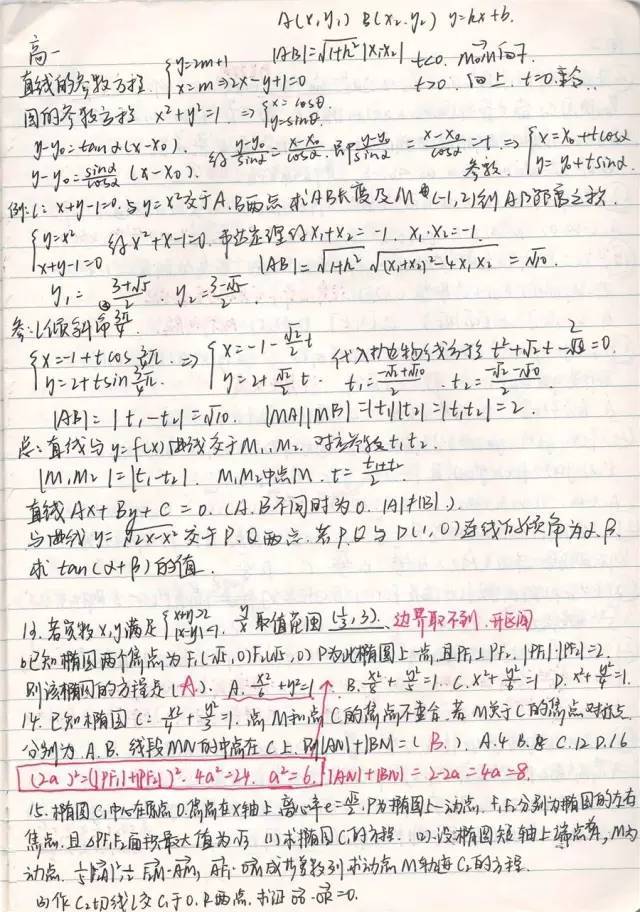 A(x₁y₁) B(x₂.y₂) y=kx+b.
高一 |AB|=√(1+k²)|x₁-x₂| t<0.
直线的参数方程. {y=2m+1 x=m ⇒2x-y+1=0 t>0. 向上. t=0.重合.
圆的参数方程 x²+y²=1 ⇒{x=cosθ. y=sinθ.
y-y₀=tanα(x-x₀).
y-y₀=sinα/cosα(x-x₀). 得 (y-y₀)/sinα=(x-x₀)/cosα. 即 (y-y₀)/sinα=(x-x₀)/cosα=t ⇒ {x=x₀+tcosα y=y₀+tsinα.
参数
例: l: x+y-1=0.与y=x²交于A.B两点 求AB长度及M(-1,2)到AB距离之积.
{y=x² x+y-1=0 得x²+x-1=0. 韦达定理得x₁+x₂=-1. x₁·x₂=-1.
|AB|=√(1+k²)√((x₁+x₂)²-4x₁x₂)=√10.
y₁=(3+√5)/2. y₂=(3-√5)/2.
参: l倾斜角3π/4.
{x=-1+tcos3π/4. y=2+tsin3π/4. ⇒ {x=-1-√2/2t y=2+√2/2t. 代入抛物线方程 t²+√2t-2=0.
t₁=(-√2+√10)/2. t₂=(-√2-√10)/2.
|AB|=|t₁-t₂|=√10. |MA||MB|=|t₁||t₂|=|t₁t₂|=2.
总: 直线与y=f(x)曲线交于M₁.M₂. 对应参数t₁,t₂.
|M₁M₂|=|t₁-t₂|. M₁M₂中点M. t=(t₁+t₂)/2.
直线Ax+By+C=0.(A.B不同时为0.|A|≠|B|).
与曲线y=√(2x-x²)交于P.Q两点.若P.Q与D(1,0)连线倾斜角为α.β.
求tan(α+β)的值.
13.若实数x,y满足{x+y>2 |x-y|<1. y/x取值范围(1/3,3). 边界取不到.开区间
6已知椭圆两个焦点为F₁(-√5,0)F₂(√5,0) P为此椭圆上一点,且PF₁⊥PF₂. |PF₁|·|PF₂|=2.
则该椭圆的方程是(A). A.x²/6+y²=1 B.x²/6+y²/5=1. C.x²+y²/6=1 D.x²+y²/4=1.
14.已知椭圆C: x²/4+y²/3=1.点M和点C的焦点不重合.若M关于C的焦点对称点
分别为A.B.线段MN的中点在C上.则|AN|+|BN|=(B.). A.4 B.8 C.12 D.16
(2a)²=(|PF₁|+|PF₂|)². 4a²=24. a²=6. |AN|+|BN|=2·2a=4a=8.
15.椭圆C₁中心在原点O.焦点在x轴上.离心率e=√2/2.P为椭圆上一动点. F₁.F₂分别为椭圆的左右
焦点.且△PF₁F₂面积最大值为√3 (1)求椭圆C₁的方程. (2)设椭圆短轴上端点A,M为
动点. 成等差数列求动点M轨迹C₂的方程.
(3)作C₂切线l交C₁于Q.R两点.求证OQ·OR=0.